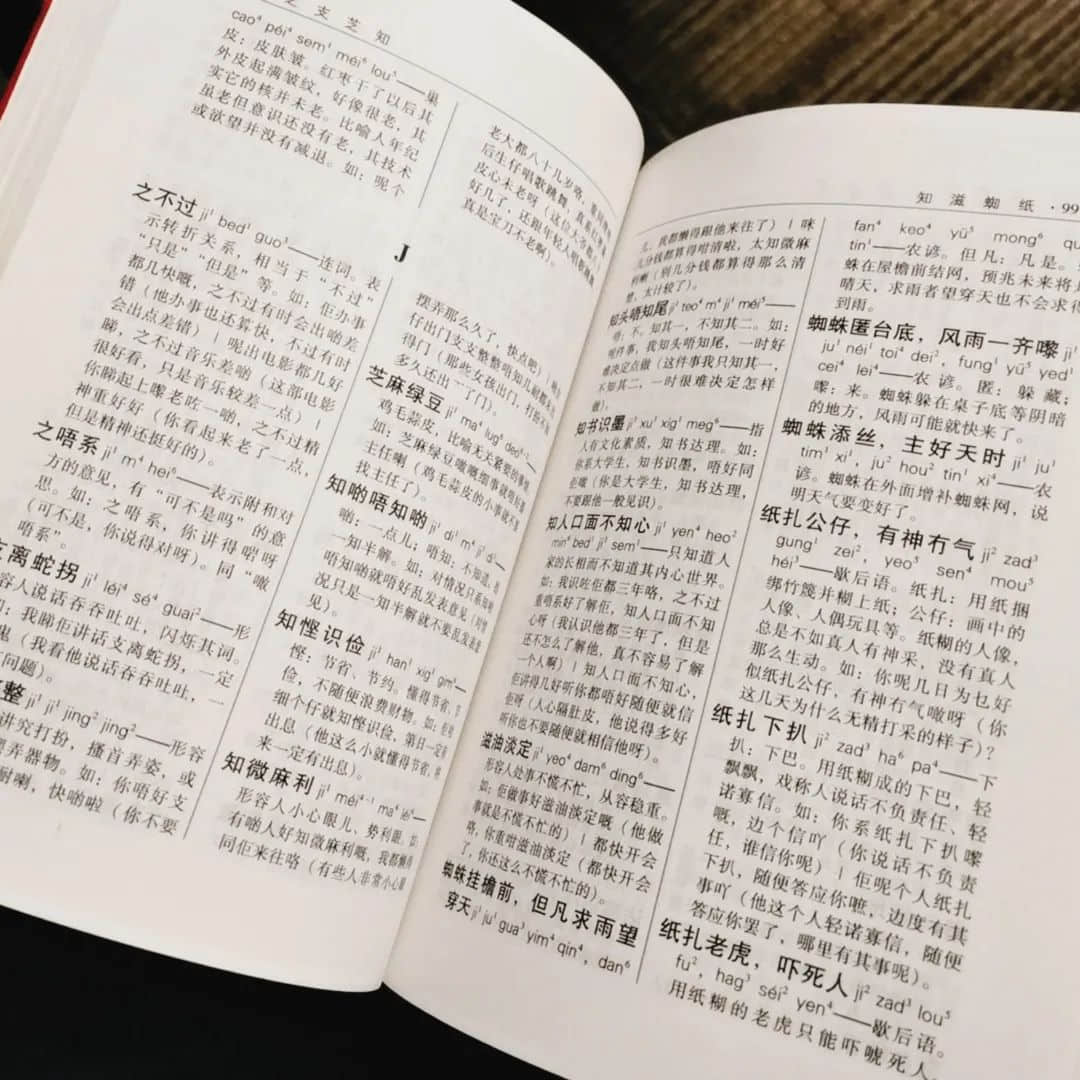 之 支 芝 知
cao⁴ péi⁴ sem¹ méi⁶ lou⁵——巢
皮：皮肤皱。红枣干了以后其
外皮起满皱纹，好像很老，其
实它的核并未老。比喻人年纪
虽老但意识还没有老，其技术
或欲望并没有减退。如：呢个
老大都八十几岁咯，重同埋啲
后生仔唱歌跳舞，真系红枣巢
皮心未老呀
好几了，还跟年轻人唱歌跳舞，
真是宝刀不老啊）。
J
之不过 ji¹ bed¹ guo³——连词。表
示转折关系，相当于“不过”
“只是”“但是”等。如：佢办事
都几快嘅，之不过有时会出啲差
错（他办事也还算快，不过有时
会出点差错）｜呢出电影都几好
睇，之不过音乐差啲（这部电影
很好看，只是音乐较差一点）｜
你睇起上嚟老咗一啲，之不过精
神重好好（你看起来老了一点，
但是精神还挺好的）。
之唔系 ji¹ m⁴ hei⁶——表示附和对
方的意见，有“可不是吗”的意
思。如：之唔系，你讲得啱呀
（可不是，你说得对呀）。同“噉
唔系”。
支离蛇拐 ji¹ léi⁴ sé⁴ guai²——形
容人说话吞吞吐吐，闪烁其词。
如：我睇佢讲话支离蛇拐，一定
鬼（我看他说话吞吞吐吐，一
问题）。
整 ji¹ ji¹ jing² jing²——形容
讲究打扮，搔首弄姿，或
弄器物。如：你唔好支
喇，快啲啦（你不要
摆弄那么久了，快点吧）｜
仔出门支支整整唔知几耐都未出
得门（那些女孩出门，打扮不知
多久还出不了门）。
芝麻绿豆 ji¹ ma⁴ lug⁶ deo⁶⁻²——
鸡毛蒜皮，比喻无关紧要的事情。
如：芝麻绿豆嘅细事就唔好
主任喇（鸡毛蒜皮的小事就不要
找主任了）。
知啲唔知啲 ji¹ di¹ m⁴ ji¹ di¹——
啲：一点儿；唔知：不知道。指
一知半解。如：对情况只系知啲
唔知啲就唔好乱发表意见（对情
况只是一知半解就不要乱发表意
见）。
知悭识俭 ji¹ han¹ xig¹ gim⁶——
悭：节省、节约。懂得节省、节
俭，不随便浪费财物。如：佢
细个仔就知悭识俭，第日一定有
出息（他这么小就懂得节省，将
来一定有出息）。
知微麻利 ji¹ méi⁴⁻¹ ma⁴ léi⁶——
形容人小心眼儿、势利眼。如：
有啲人好知微麻利嘅，我都懒得
同佢来往咯（有些人非常小心眼
知 滋 蜘 纸 ·99
儿，我都懒得跟他来往了）｜咪
几分钱都算得咁清啦，太知微麻
利喇（别几分钱都算得那么清
楚，太计较了）。
知头唔知尾 ji¹ teo⁴ m⁴ ji¹ méi⁵——
指，不知其一，不知其二。如：
呢件事，我知头唔知尾，一时好
难决定点做（这件事我只知其一，
不知其二，一时很难决定怎样
做）。
知书识墨 ji¹ xu¹ xig¹ meg⁶——指
人有文化素质，知书达理。如：
你系大学生，知书识墨，唔好同
佢哦（你是大学生，知书达理，
不要跟他一般见识）。
知人口面不知心 ji¹ yen⁴ heo²
min⁶ bed¹ ji¹ sem¹——只知道人
家的长相而不知道其内心世界。
如：我识咗佢都三年咯，之不过
重唔系好了解佢，知人口面不知
心呀（我认识他都三年了，但是
还不怎么了解他，真不容易了解
一个人啊）｜知人口面不知心，
佢讲得几好听你都唔好随便就信
佢呀（人心隔肚皮，他说得多好
听你也不要随便就相信他呀）。
滋油淡定 ji¹ yeo⁴ dam⁶ ding⁶——
形容人处事不慌不忙，从容稳重。
如：佢做事好滋油淡定嘅（他做
事就是不慌不忙的）｜都快开会
了，你重咁滋油淡定（都快开会
了，你还这么不慌不忙的）。
蜘蛛挂檐前，但凡求雨望
穿天 ji¹ ju¹ gua³ yim⁴ qin⁴，dan⁶
fan⁴ keo⁴ yü⁵ mong⁶ qu
tin¹——农谚。但凡：凡是。
蛛在屋檐前结网，预兆未来将是
晴天，求雨者望穿天也不会求得
到雨。
蜘蛛匿台底，风雨一齐嚟 ji¹
ju¹ néi¹ toi⁴ dei²，fung¹ yü⁵ yed¹
cei⁴ lei⁴——农谚。匿：躲藏；
嚟：来。蜘蛛躲在桌子底等阴暗
的地方，风雨可能就快来了。
蜘蛛添丝，主好天时 ji¹ ju¹
tim¹ xi¹，ju² hou² tin¹ xi⁴——农
谚。蜘蛛在外面增补蜘蛛网，说
明天气要变好了。
纸扎公仔，有神冇气 ji² zad³
gung¹ zei²，yeo⁵ sen⁴ mou⁵
héi³——歇后语。纸扎：用纸捆
绑竹篾并糊上纸；公仔：画中的
人像、人偶玩具等。纸糊的人像，
总是不如真人有神采，没有真人
那么生动。如：你呢几日为乜好
似纸扎公仔，有神冇气噉呀（你
这几天为什么无精打采的样子）？
纸扎下扒 ji² zad³ ha⁶ pa⁴——下
扒：下巴。用纸糊成的下巴，轻
飘飘，戏称人说话不负责任、轻
诺寡信。如：你系纸扎下扒嚟
嘅，边个信吖（你说话不负责
任，谁信你呢）｜佢呢个人纸扎
下扒，随便答应你嘅，边度有其
事吖（他这个人轻诺寡信，随便
答应你罢了，哪里有其事呢）。
纸扎老虎，吓死人 ji² zad³ lou⁵
fu²，hag³ séi² yen⁴——歇后语。
用纸糊的老虎只能吓唬死人，